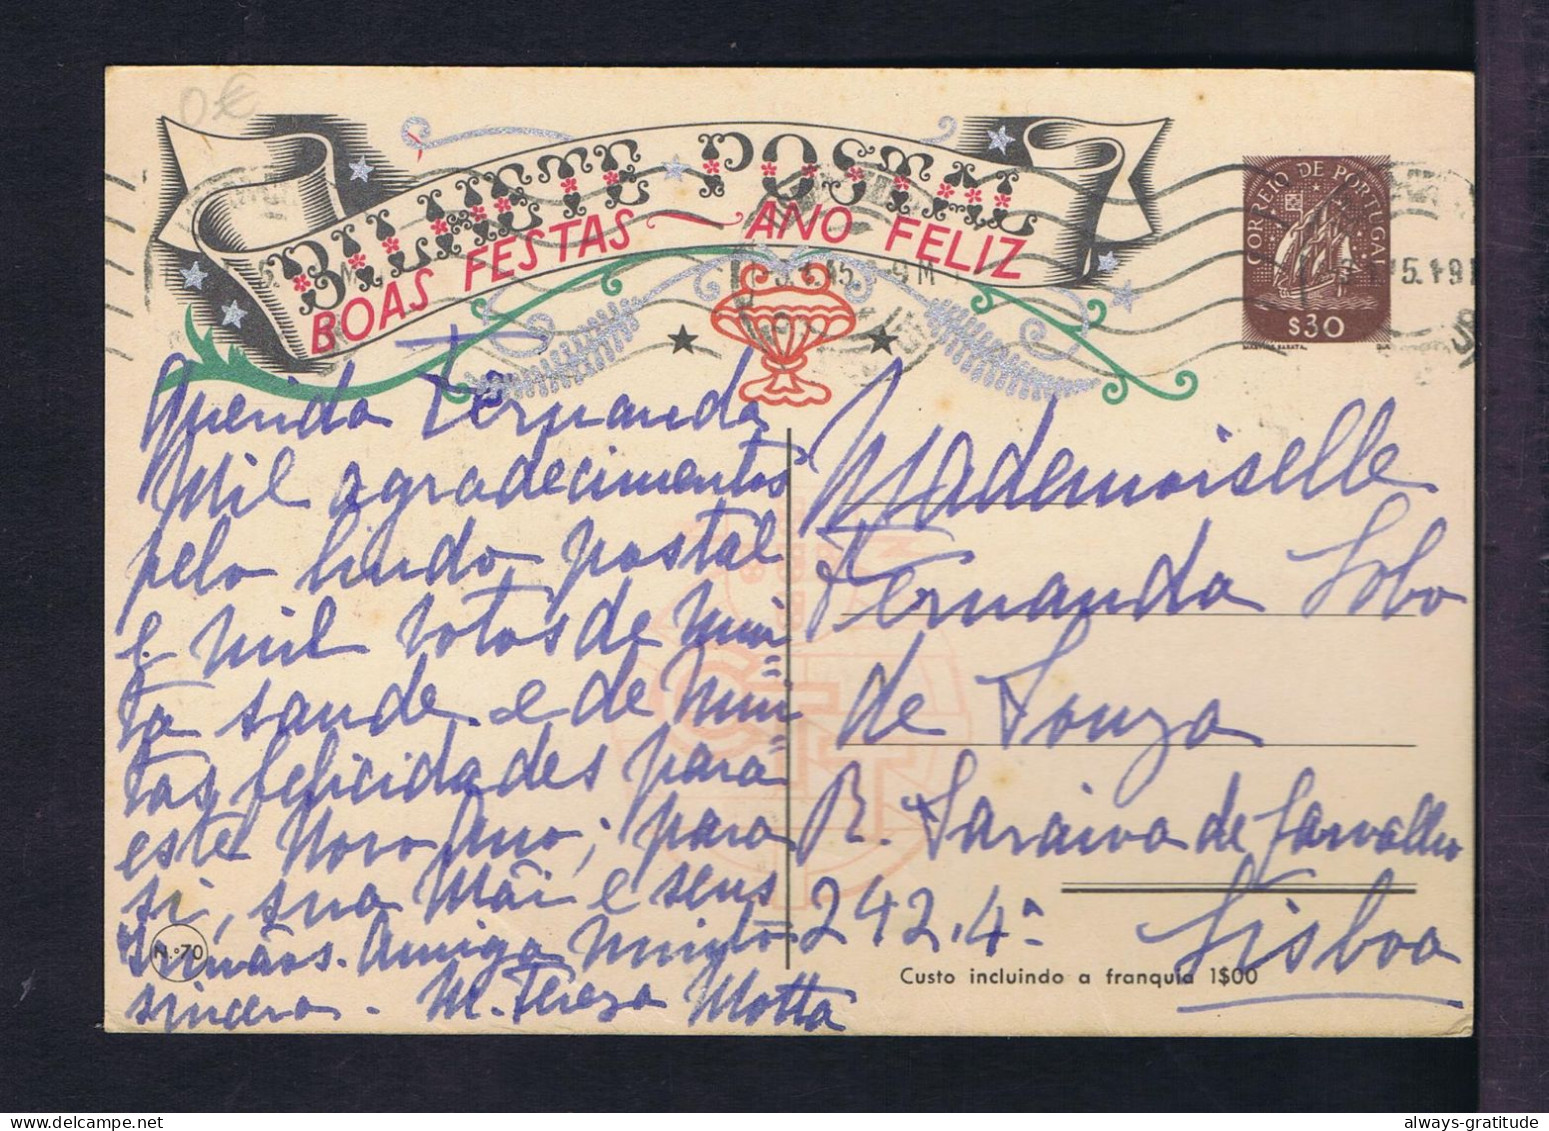 0€
BILHETE POSTAL
BOAS FESTAS — ANO FELIZ
CORREIO DE PORTUGAL
$30
Querida Fernanda
Mil agradecimentos
pelo lindo postal
e mil votos de mui=
ta saude e de mui=
tas felicidades para
este Novo Ano; para
si, sua Mãi e seus
Irmãos. Amiga muito
sincera. M. Tereza Motta
Mademoiselle
Fernanda Lobo
de Souza
R. Saraiva de Carvalho
242.4º
Lisboa
CTT
N.º 70
Custo incluindo a franquia 1$00
always-gratitude